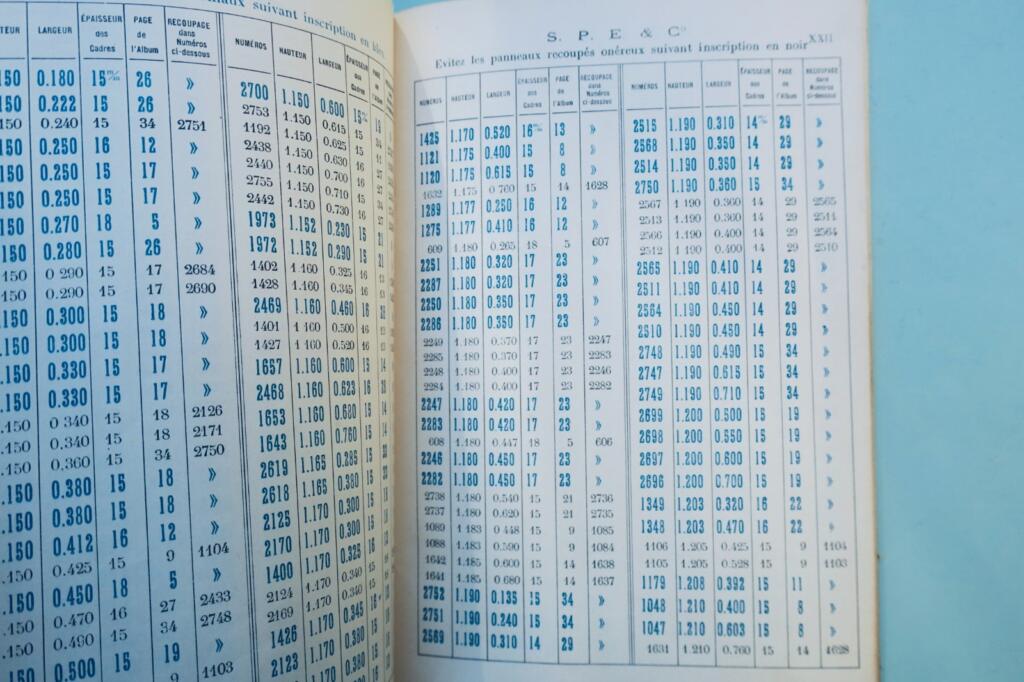 suivant inscription en bleu
LARGEUR ÉPAISSEUR des Cadres PAGE de l'Album RECOUPAGE dans Numéros ci-dessous
150 0.180 15 m/m 26 »
150 0.222 15 26 »
150 0.240 15 34 2751
150 0.250 16 12 »
150 0.250 15 17 »
150 0.250 15 17 »
150 0.270 18 5 »
150 0.280 15 26 »
150 0.290 15 17 2684
150 0.290 15 17 2690
150 0.300 15 18 »
150 0.300 15 18 »
150 0.330 15 17 »
150 0.330 15 17 »
.150 0.340 15 18 2126
.150 0.340 15 18 2171
.150 0.360 15 34 2750
.150 0.380 15 18 »
.150 0.380 15 18 »
.150 0.412 16 12 »
.150 0.425 15 9 1104
.150 0.450 18 5 »
.150 0.470 16 27 2433
.150 0.490 15 34 2748
.150 0.500 15 19 »
9 1103
NUMÉROS HAUTEUR LARGEUR ÉPAISSEUR des Cadres PAGE de l'Album
2700 1.150 0.600 15
2753 1.150 0.615 15
1192 1.150 0.625 15
2438 1.150 0.630 16
2440 1.150 0.700 16
2755 1.150 0.710 15
2442 1.150 0.730 16
1973 1.152 0.230 15
1972 1.152 0.290 15
1402 1.160 0.325 16
1428 1.160 0.345 16
2469 1.160 0.460 16
1401 1.160 0.500 16
1427 1.160 0.520 16
1657 1.160 0.600 15
2468 1.160 0.623 16
1653 1.160 0.680 15
1643 1.160 0.760 15
2619 1.165 0.285 15
2618 1.165 0.380 15
2125 1.170 0.300 15
2170 1.170 0.300 15
1400 1.170 0.325 16
2124 1.170 0.340 15
2169 1.170 0.340 15
1426 1.170 0.345 16
2123 1.170 0.380 15
S. P. E & Co
XXII
Evitez les panneaux recoupés onéreux suivant inscription en noir
NUMÉROS HAUTEUR LARGEUR ÉPAISSEUR des Cadres PAGE de l'Album RECOUPAGE dans Numéros ci-dessous
1425 1.170 0.520 16 m/m 13 »
1121 1.175 0.400 15 8 »
1120 1.175 0.615 15 8 »
1632 1.175 0.760 15 14 1628
1289 1.177 0.250 16 12 »
1275 1.177 0.410 16 12 »
609 1.180 0.265 18 5 607
2251 1.180 0.320 17 23 »
2287 1.180 0.320 17 23 »
2250 1.180 0.350 17 23 »
2286 1.180 0.350 17 23 »
2249 1.180 0.370 17 23 2247
2285 1.180 0.370 17 23 2283
2248 1.180 0.400 17 23 2246
2284 1.180 0.400 17 23 2282
2247 1.180 0.420 17 23 »
2283 1.180 0.420 17 23 »
608 1.180 0.447 18 5 606
2246 1.180 0.450 17 23 »
2282 1.180 0.450 17 23 »
2738 1.180 0.540 15 21 2736
2737 1.180 0.620 15 21 2735
1089 1.183 0.448 15 9 1085
1088 1.183 0.590 15 9 1084
1642 1.185 0.600 15 14 1638
1641 1.185 0.680 15 14 1637
2752 1.190 0.135 15 34 »
2751 1.190 0.240 15 34 »
2569 1.190 0.310 14 29 »
NUMÉROS HAUTEUR LARGEUR ÉPAISSEUR des Cadres PAGE de l'Album RECOUPAGE dans Numéros ci-dessous
2515 1.190 0.310 14 m/m 29 »
2568 1.190 0.350 14 29 »
2514 1.190 0.350 14 29 »
2750 1.190 0.360 15 34 »
2567 1.190 0.360 14 29 2565
2513 1.190 0.360 14 29 2511
2566 1.190 0.400 14 29 2564
2512 1.190 0.400 14 29 2510
2565 1.190 0.410 14 29 »
2511 1.190 0.410 14 29 »
2564 1.190 0.450 14 29 »
2510 1.190 0.450 14 29 »
2748 1.190 0.490 15 34 »
2747 1.190 0.615 15 34 »
2749 1.190 0.710 15 34 »
2699 1.200 0.500 15 19 »
2698 1.200 0.550 15 19 »
2697 1.200 0.600 15 19 »
2696 1.200 0.700 15 19 »
1349 1.203 0.320 16 22 »
1348 1.203 0.470 16 22 »
1106 1.205 0.425 15 9 1104
1105 1.205 0.528 15 9 1103
1179 1.208 0.392 15 11 »
1048 1.210 0.400 15 8 »
1047 1.210 0.603 15 8 »
1631 1.210 0.760 15 14 1628